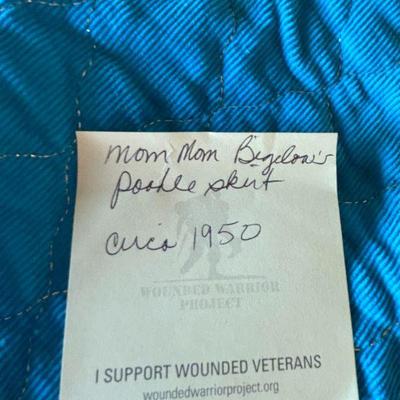 Mom Mom Bigelow's
poodle skirt
circa 1950
WOUNDED WARRIOR
PROJECT
I SUPPORT WOUNDED VETERANS
woundedwarriorproject.org